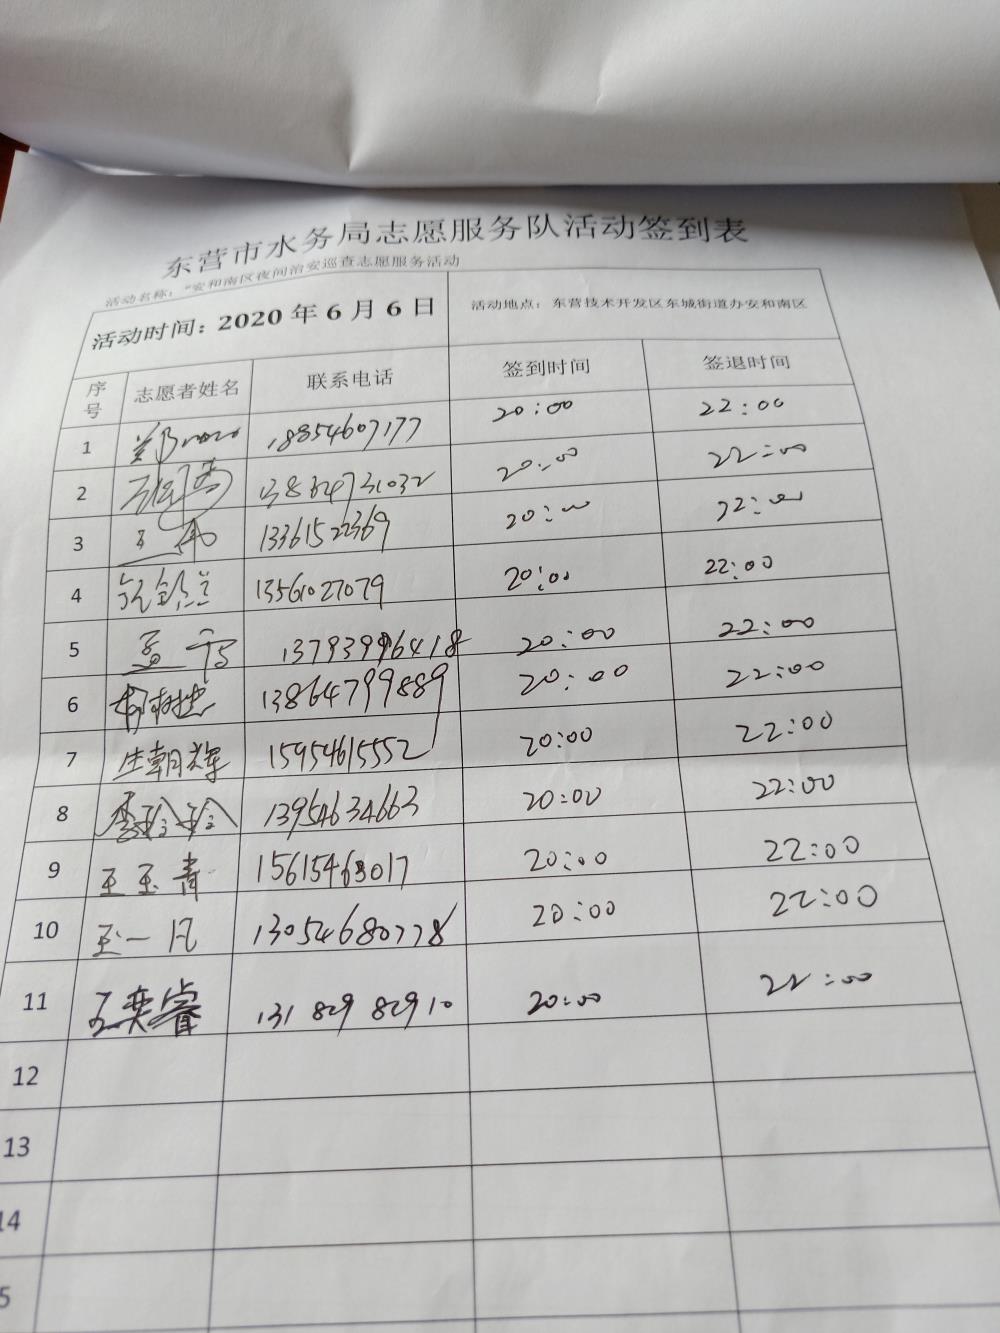 东营市水务局志愿服务队活动签到表
活动名称：“安和南区夜间治安巡查志愿服务活动
活动时间：2020 年 6 月 6 日 活动地点：东营技术开发区东城街道办安和南区
序号 志愿者姓名 联系电话 签到时间 签退时间
1 18854607177 20:00 22:00
2 20:00 22:00
3 13361522369 20:00 22:00
4 13561027079 20:00 22:00
5 孟 13793996418 20:00 22:00
6 13864799889 20:00 22:00
7 生朝辉 15954615552 20:00 22:00
8 李珍珍 13954634663 20:00 22:00
9 王玉青 15615463017 20:00 22:00
10 王一凡 13054680778 20:00 22:00
11 王奕睿 131 829 82910 20:00 22:00
12
13
14
5